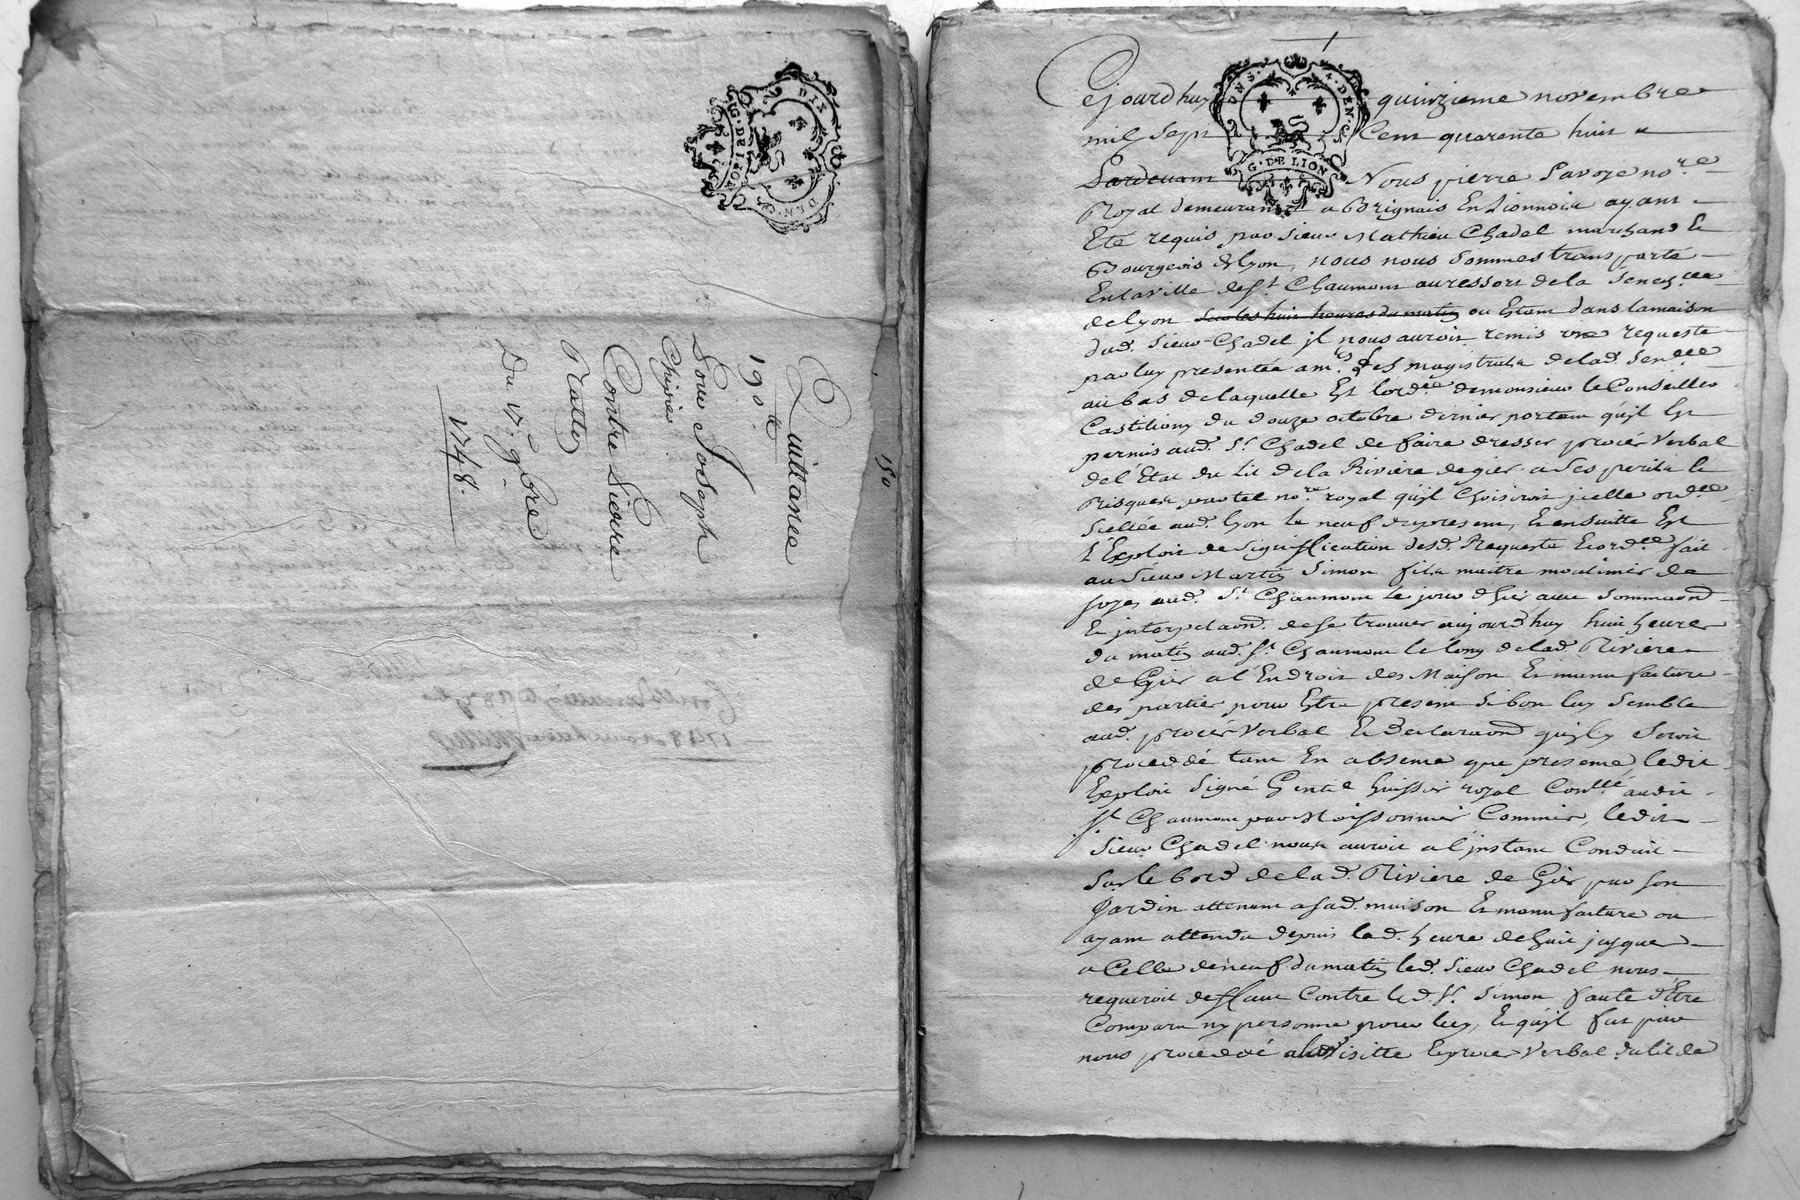 DIX
DEN.
G. DE LION
Quittance
190#
Pour Joseph
Chirie
Contre Pierre
Nattes
Du 15e 9bre
1748.
150
UN S. 4. DEN.
G. DE LION
Cejourdhuy quinzieme novembre
mil sept Cent quarente huit
Pardevant Nous pierre Lavoye nore
Royal demeurant a Brignais En Lionnois ayant
Eté requis par Sieur Mathieu Chadel marchand &
Bourgeois de lyon, nous nous Sommes transporté
En la ville de St Chaumont au ressort de la Seneschée
de lyon Sur les huit heures du matin ou Etant dans la maison
dud. Sieur Chadel jl nous auroit remis une requeste
par luy presentée a mrs les magistrats de lad. Senee
au bas de laquelle Est lordce de monsieur le Conseiller
Castiliony du douze octobre dernier portant quijl Est
permis aud. Sr Chadel de faire dresser procés Verbal
del Etat du Lit de la Riviere de gier a Ses perils &
Risques par tel nore royal quijl Choisiroit jcelle ordce
Scellée aud. lyon le neuf du present, & ensuitte Est
l'Exploit de Signiffication desd. Requeste & ordce fait
au Sieur Martin Simon fils maitre moulinier de
soyes aud. St Chaumont le jour dhier avec Sommaon
& jnterpelaon. de se trouver aujourdhuy huit heures
du matin aud. St Chaumont le long de lad. Riviere
de Gier a l'Endroit des Maison & manufacture
des parties pour Estre present Si bon luy Semble
aud. procés Verbal & declaraon quijl y Seroit
procedé tant En absence que presence ledit
Exploit Signé Gentil huissier royal Conllé audit
St Chaumont par Moissonnier Commis, ledit
Sieur Chadel nous auroit a l'jnstant Conduit
Sur le bord de lad. Riviere de Gier par son
Jardin attenant a sad. maison & manufacture ou
ayant attendu depuis lad. heure de huit jusques
a Celle de neuf du matin led. Sieur Chadel nous
requeroit deffaut Contre led. Sr Simon faute d'Etre
Comparu ny personne pour luy, & quijl fut par
nous procedé a la Visitte & procés Verbal du lit de